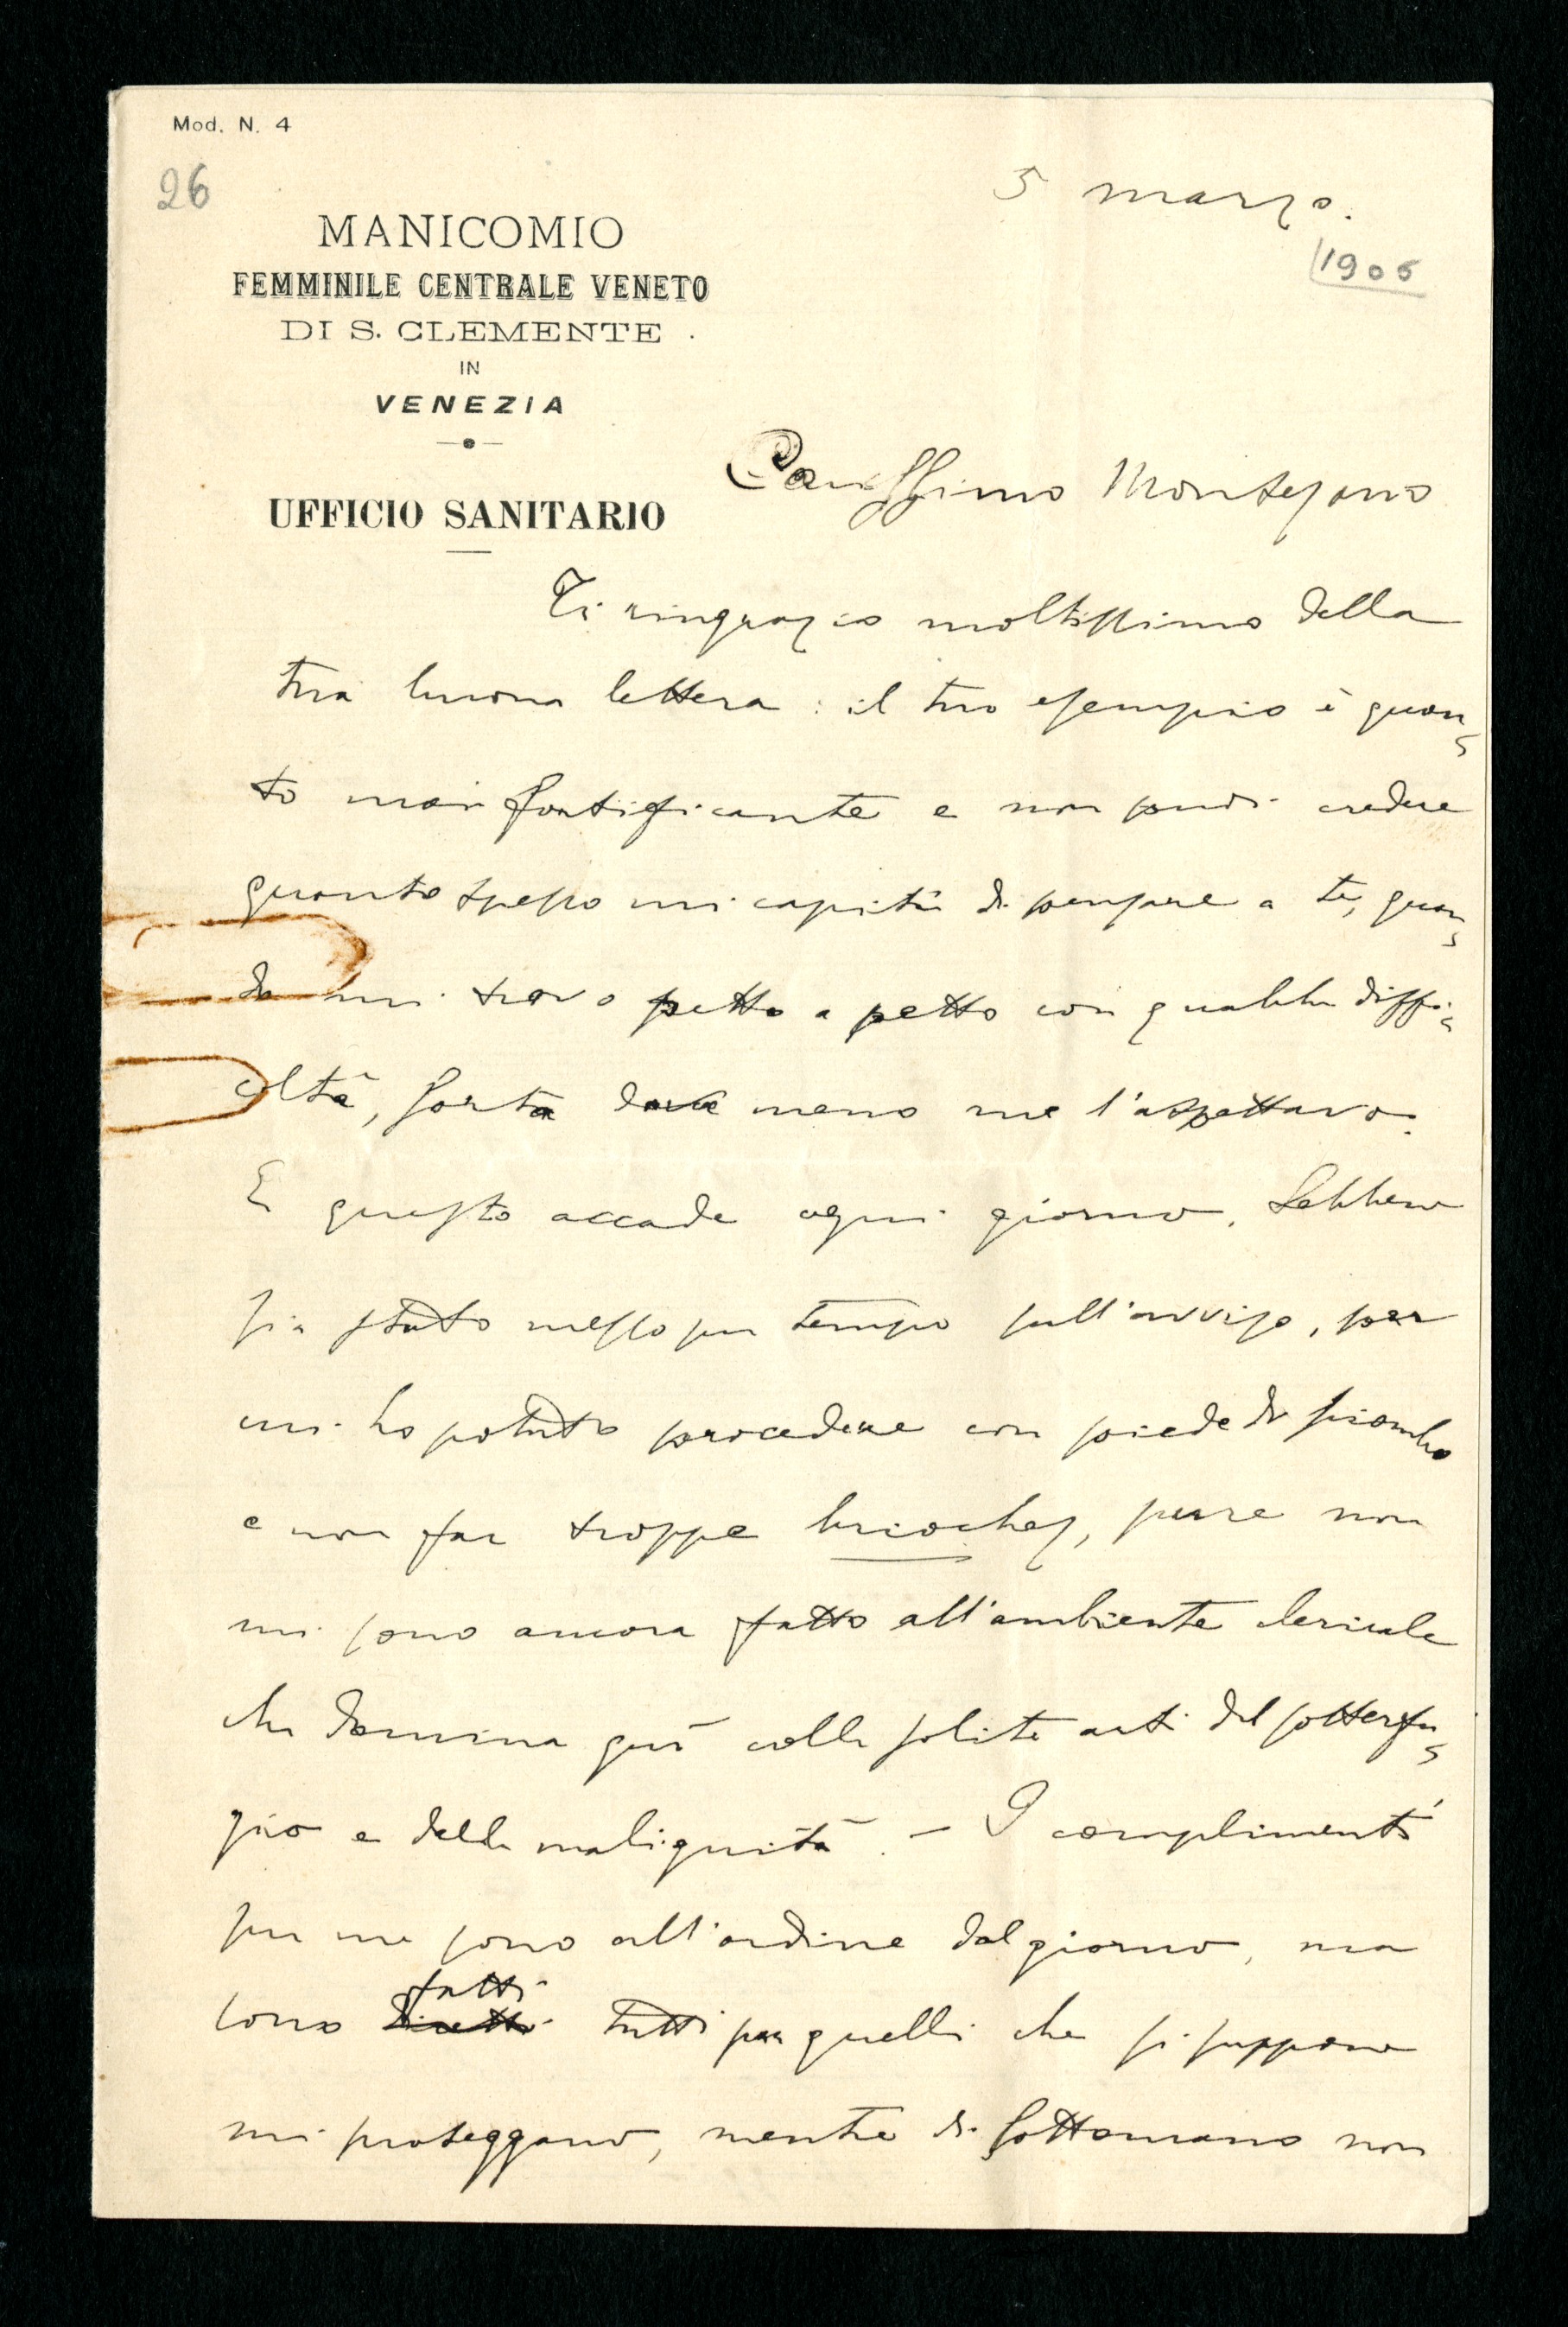 Mod. N. 4
26
5 marzo.
1905
MANICOMIO
FEMMINILE CENTRALE VENETO
DI S. CLEMENTE
IN
VENEZIA
UFFICIO SANITARIO
Carissimo Montesano
Ti ringrazio moltissimo della
tua buona lettera: il tuo esempio è quan-
to mai fortificante e non puoi credere
quanto spesso mi capiti di pensare a te, quan-
do mi trovo petto a petto con qualche diffi-
coltà, sorta dove meno me l'aspettavo.
E questo accade ogni giorno. Sebbene
sia stato messo per tempo sull'avviso, per
cui ho potuto procedere con piede di piombo
e non far troppe brioches, pure non
mi sono ancora fatto all'ambiente clericale
che domina quì colle solite arti del sotterfu-
gio e della malignità. – I complimenti
per me sono all'ordine del giorno, ma
sono fatti tutti per quelli che si suppone
mi proteggano, mentre di sottomano non